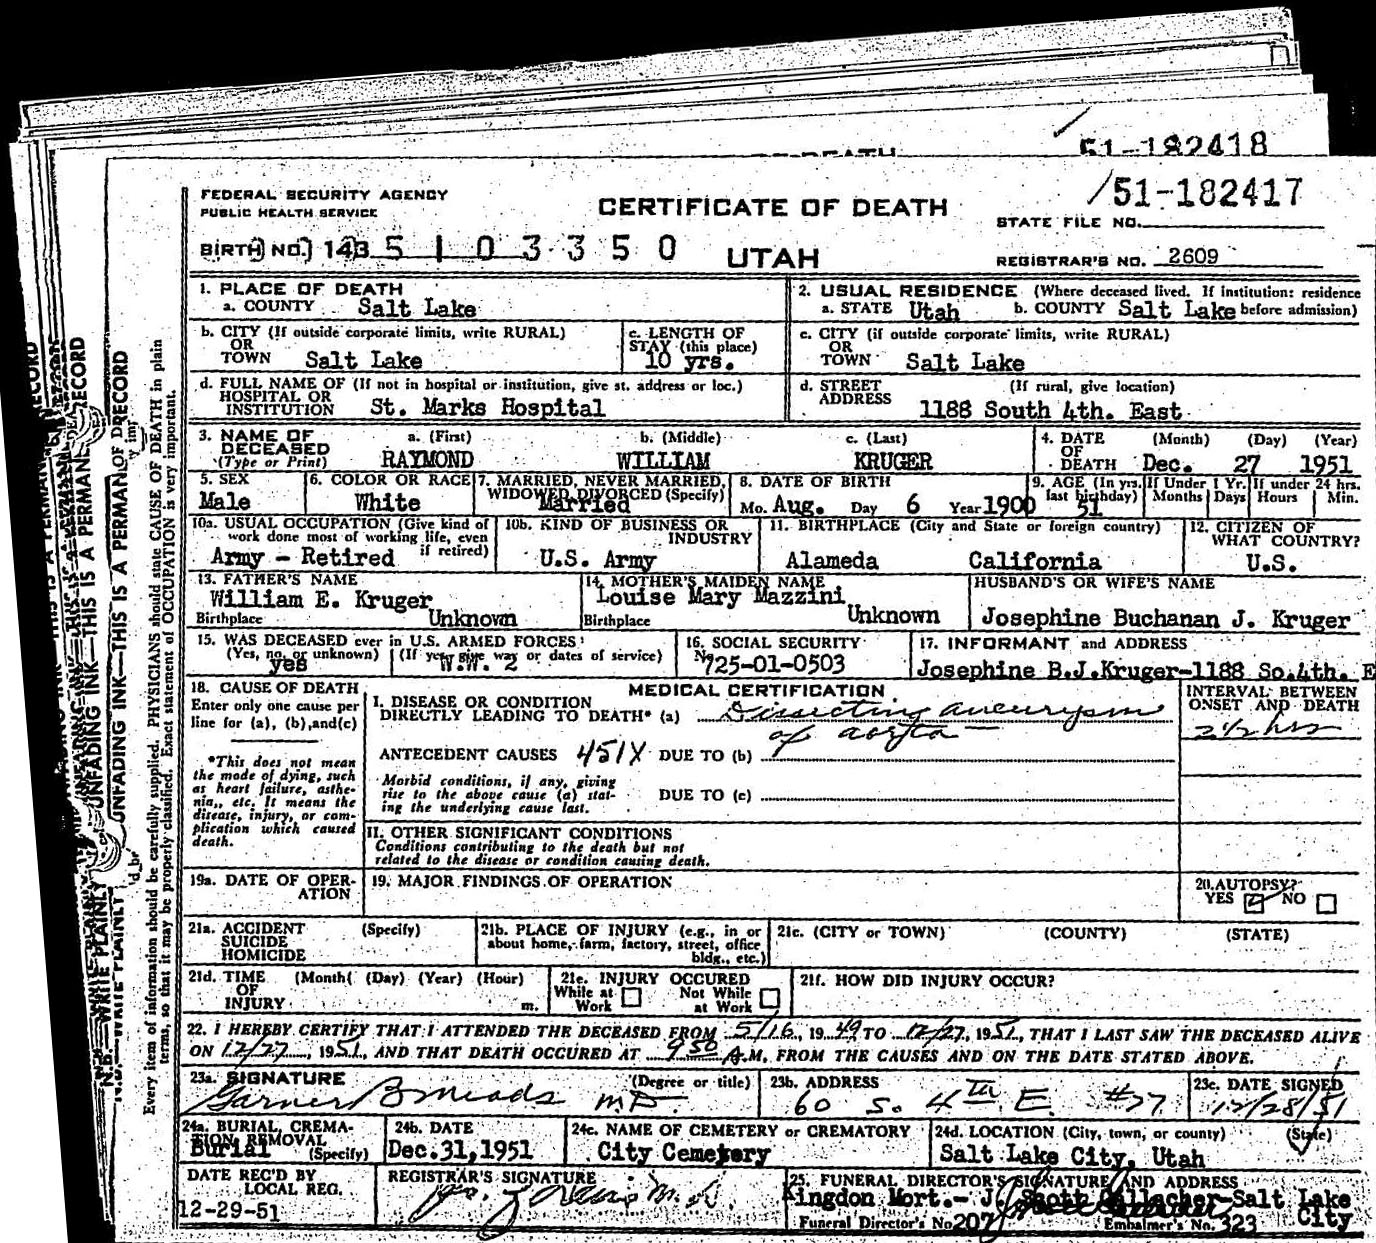 51-182418
FEDERAL SECURITY AGENCY
PUBLIC HEALTH SERVICE
CERTIFICATE OF DEATH
51-182417
STATE FILE NO.
BIRTH NO. 143 5 1 0 3 3 5 0
UTAH
REGISTRAR'S NO. 2609
1. PLACE OF DEATH
a. COUNTY Salt Lake
2. USUAL RESIDENCE (Where deceased lived. If institution: residence
a. STATE Utah b. COUNTY Salt Lake before admission)
b. CITY (If outside corporate limits, write RURAL)
OR
TOWN Salt Lake
c. LENGTH OF
STAY (this place)
10 yrs.
c. CITY (if outside corporate limits, write RURAL)
OR
TOWN Salt Lake
d. FULL NAME OF (If not in hospital or institution, give st. address or loc.)
HOSPITAL OR
INSTITUTION St. Marks Hospital
d. STREET (If rural, give location)
ADDRESS
1188 South 4th. East
3. NAME OF a. (First) b. (Middle) c. (Last)
DECEASED
(Type or Print) RAYMOND WILLIAM KRUGER
4. DATE (Month) (Day) (Year)
OF
DEATH Dec. 27 1951
5. SEX
Male
6. COLOR OR RACE
White
7. MARRIED, NEVER MARRIED,
WIDOWED DIVORCED (Specify)
Married
8. DATE OF BIRTH
Mo. Aug. Day 6 Year 1900
9. AGE (In yrs. If Under 1 Yr. If under 24 hrs.
last birthday) Months Days Hours Min.
51
10a. USUAL OCCUPATION (Give kind of
work done most of working life, even
if retired)
Army - Retired
10b. KIND OF BUSINESS OR
INDUSTRY
U.S. Army
11. BIRTHPLACE (City and State or foreign country)
Alameda California
12. CITIZEN OF
WHAT COUNTRY?
U.S.
13. FATHER'S NAME
William E. Kruger
Birthplace Unknown
14. MOTHER'S MAIDEN NAME
Louise Mary Mazzini
Birthplace Unknown
HUSBAND'S OR WIFE'S NAME
Josephine Buchanan J. Kruger
15. WAS DECEASED ever in U.S. ARMED FORCES?
(Yes, no, or unknown) (If yes, give war or dates of service)
yes W.W. 2
16. SOCIAL SECURITY
No 725-01-0503
17. INFORMANT and ADDRESS
Josephine B.J.Kruger-1188 So.4th. E
18. CAUSE OF DEATH
Enter only one cause per
line for (a), (b),and(c)
*This does not mean
the mode of dying, such
as heart failure, asthe-
nia,, etc. It means the
disease, injury, or com-
plication which caused
death.
MEDICAL CERTIFICATION
I. DISEASE OR CONDITION
DIRECTLY LEADING TO DEATH* (a) Dissecting aneurysm
of aorta
ANTECEDENT CAUSES 451X DUE TO (b)
Morbid conditions, if any, giving
rise to the above cause (a) stat-
ing the underlying cause last.
DUE TO (c)
INTERVAL BETWEEN
ONSET AND DEATH
2½ hrs
II. OTHER SIGNIFICANT CONDITIONS
Conditions contributing to the death but not
related to the disease or condition causing death.
19a. DATE OF OPER-
ATION
19. MAJOR FINDINGS OF OPERATION
20. AUTOPSY?
YES NO
21a. ACCIDENT (Specify)
SUICIDE
HOMICIDE
21b. PLACE OF INJURY (e.g., in or
about home, farm, factory, street, office
bldg., etc.)
21c. (CITY or TOWN) (COUNTY) (STATE)
21d. TIME (Month( (Day) (Year) (Hour)
OF
INJURY m.
21e. INJURY OCCURED
While at Not While
Work at Work
21f. HOW DID INJURY OCCUR?
22. I HEREBY CERTIFY THAT I ATTENDED THE DECEASED FROM 5/16, 1949 TO 12/27, 1951, THAT I LAST SAW THE DECEASED ALIVE
ON 12/27, 1951, AND THAT DEATH OCCURED AT 450 A.M. FROM THE CAUSES AND ON THE DATE STATED ABOVE.
23a. SIGNATURE (Degree or title)
Garner B Meads M.D.
23b. ADDRESS
60 S. 4th E. #27
23c. DATE SIGNED
12/28/51
24a. BURIAL, CREMA-
TION REMOVAL
Burial (Specify)
24b. DATE
Dec.31,1951
24c. NAME OF CEMETERY or CREMATORY
City Cemetery
24d. LOCATION (City, town, or county) (State)
Salt Lake City, Utah
DATE REC'D BY
LOCAL REG.
12-29-51
REGISTRAR'S SIGNATURE
25. FUNERAL DIRECTOR'S SIGNATURE AND ADDRESS
Kingdon Mort.- J. Scott Gallacher-Salt Lake
City
Funeral Director's No 207 Embalmer's No. 323
UNFADING INK—THIS IS A PERMAN
RECORD
N.B.—WRITE PLAINLY
Every item of information should be carefully supplied. PHYSICIANS should state CAUSE OF DEATH in plain
terms, so that it may be properly classified. Exact statement of OCCUPATION is very important.